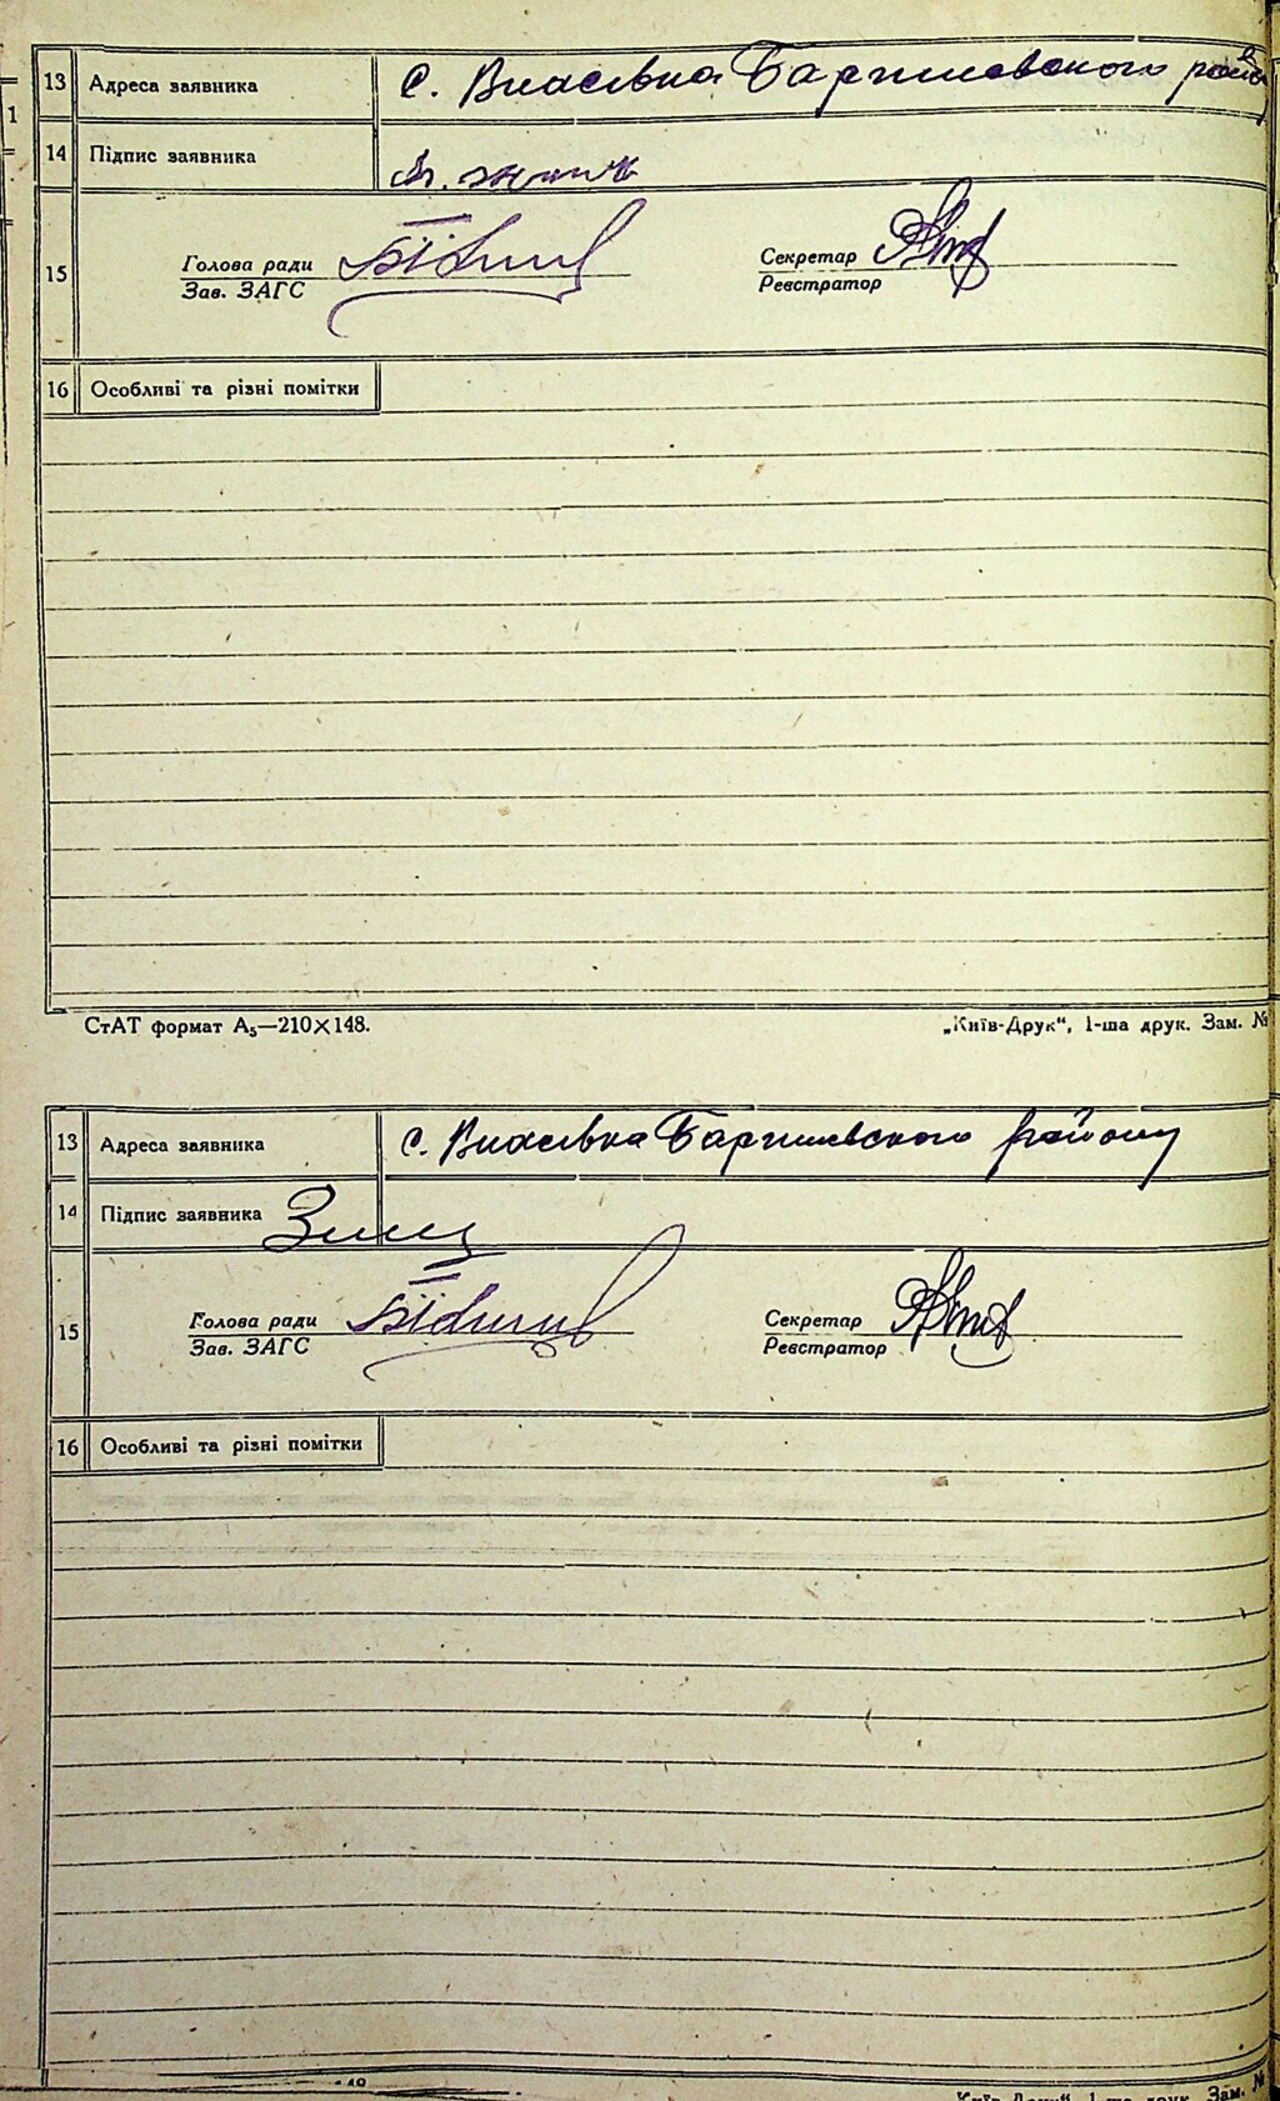 13 Адреса заявника с. Власівка Баришевского району
14 Підпис заявника
15 Голова ради Секретар
Зав. ЗАГС Реєстратор
16 Особливі та різні помітки
СтАТ формат А₅—210×148. „Київ-Друк“, 1-ша друк. Зам. №
13 Адреса заявника с. Власівка Баришевского району
14 Підпис заявника
15 Голова ради Секретар
Зав. ЗАГС Реєстратор
16 Особливі та різні помітки
1-ша друк. Зам. №